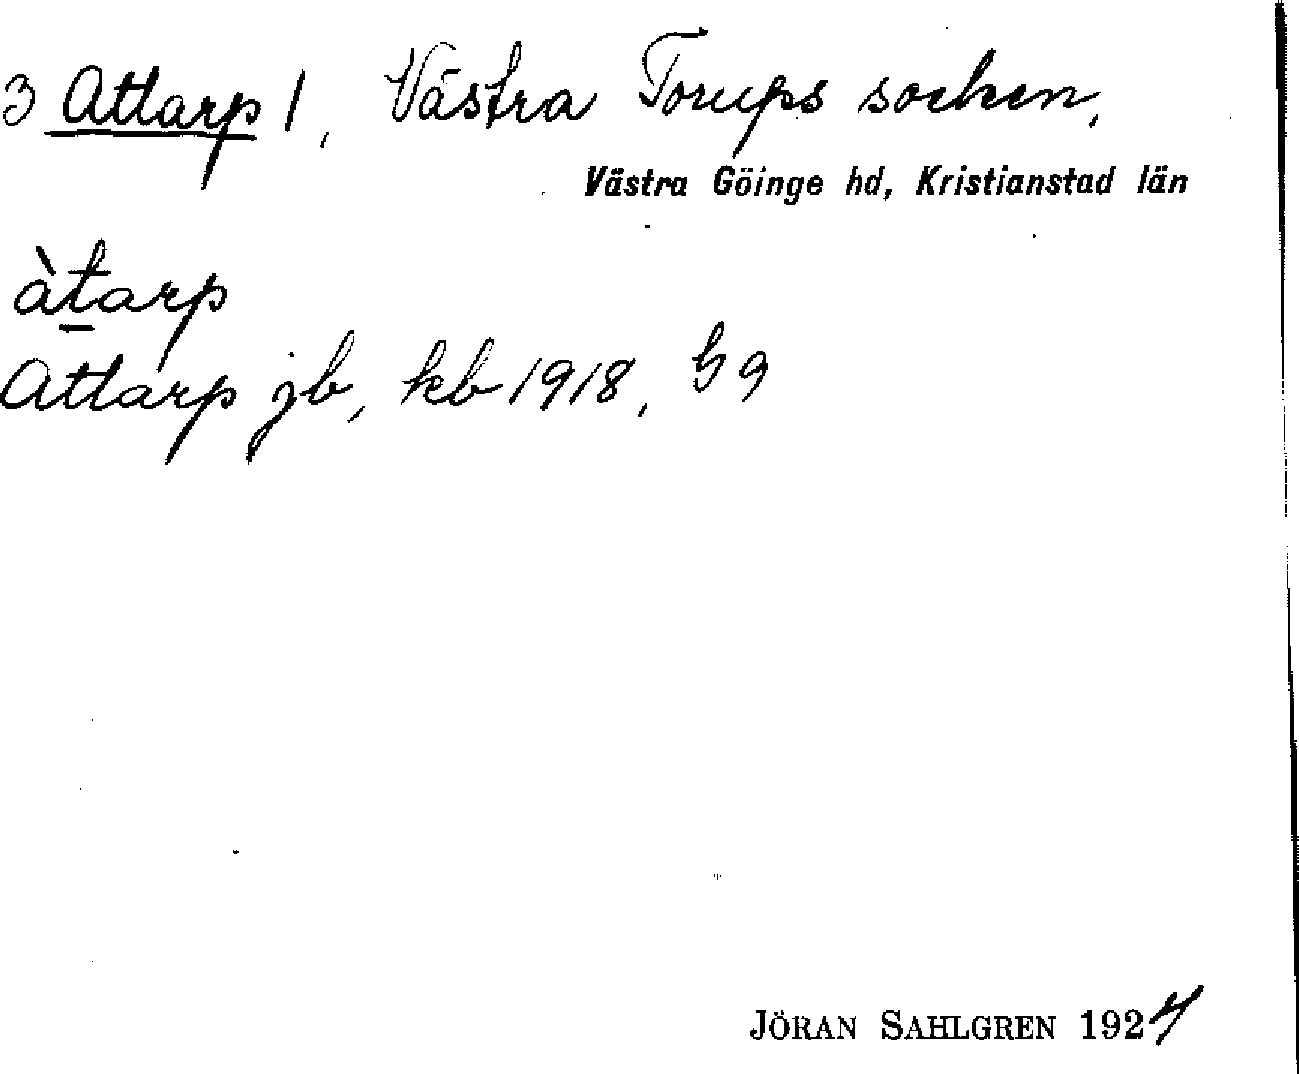 3 Attarp 1, Västra Torups socken,
Västra Göinge hd, Kristianstad län
àtarp
Attarp jb, kb 1918, G9
JÖRAN SAHLGREN 1924